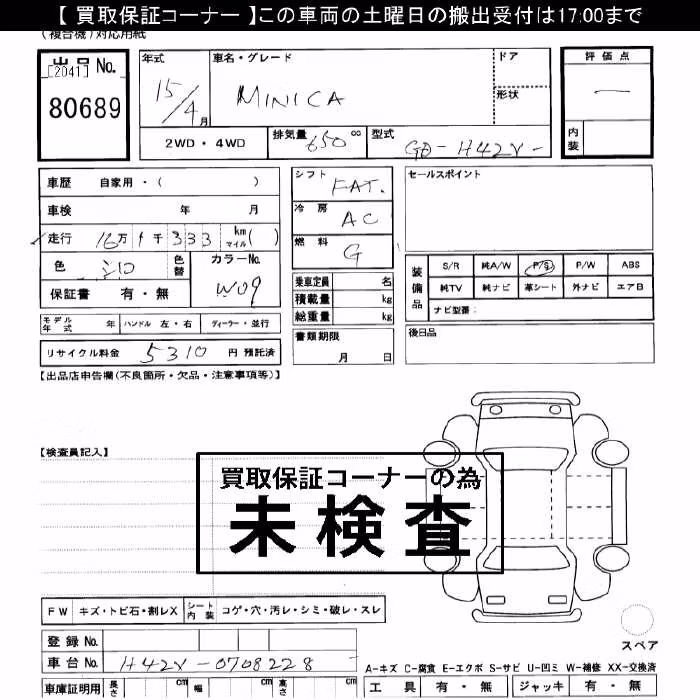 【 買取保証コーナー 】この車両の土曜日の搬出受付は17:00まで
(複合機)対応用紙
出品 No.
[2041]
80689
年式
15/4月
車名・グレード
MINICA
ドア
形状
評価点
内装
2WD・4WD
排気量 650 cc
型式 GD-H42V-
車歴 自家用・( )
車検 年 月
走行 16万 1千 333 km マイル ( )
色 シロ
色替
カラーNo.
W09
保証書 有・無
モデル年式 年 ハンドル 左・右 ディーラー・並行
リサイクル料金 5310 円 預託済
シフト FAT.
冷房 AC
燃料 G
乗車定員 名
積載量 kg
総重量 kg
書類期限
月 日
セールスポイント
装備品
S/R 純A/W P/S P/W ABS
純TV 純ナビ 革シート 外ナビ エアB
ナビ型番:
後日品
【出品店申告欄(不良箇所・欠品・注意事項等)】
【検査員記入】
買取保証コーナーの為
未検査
FW キズ・トビ石・割レX シート内装 コゲ・穴・汚レ・シミ・破レ・スレ
スペア
登録 No.
車台 No. H42V-0708228
A-キズ C-腐食 E-エクボ S-サビ U-凹ミ W-補修 XX-交換済
車庫証明用 長さ cm 幅 cm 高さ cm
工具 有・無 ジャッキ 有・無